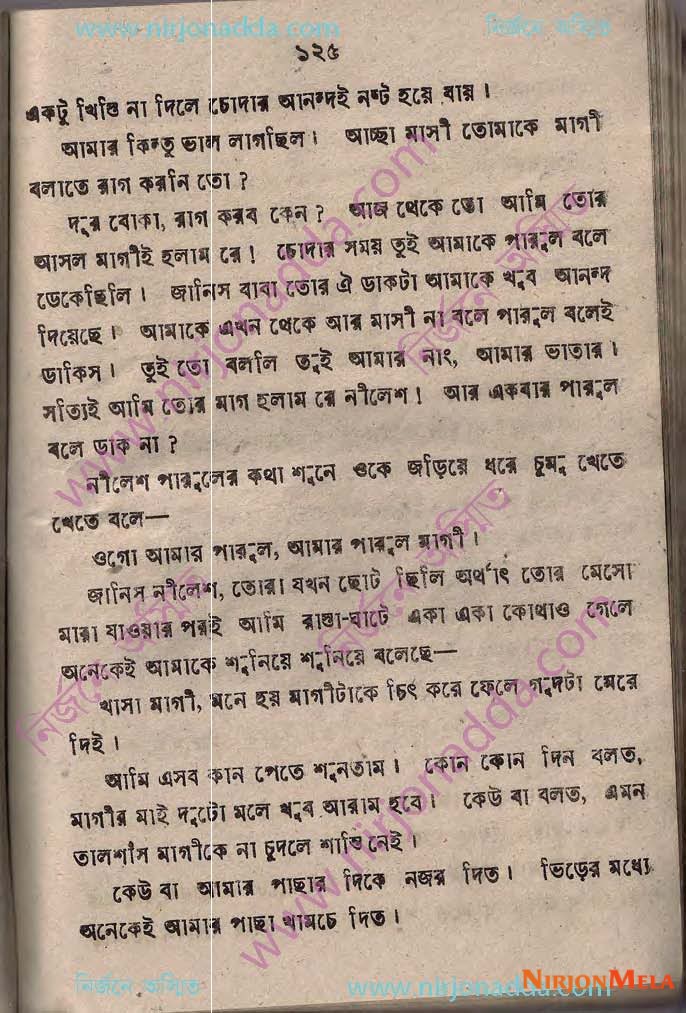 www.nirjonadda.com নির্জনে অস্মিত
১২৫
একটু খিস্তি না দিলে চোদার আনন্দই নষ্ট হয়ে যায়।
আমার কিন্তু ভাল লাগছিল। আচ্ছা মাসী তোমাকে মাগী
বলাতে রাগ করনি তো?
দূর বোকা, রাগ করব কেন? আজ থেকে তো আমি তোর
আসল মাগীই হলাম রে! চোদার সময় তুই আমাকে পারুল বলে
ডেকেছিলি। জানিস বাবা তোর ঐ ডাকটা আমাকে খুব আনন্দ
দিয়েছে। আমাকে এখন থেকে আর মাসী না বলে পারুল বলেই
ডাকিস। তুই তো বললি তুই আমার নাং, আমার ভাতার।
সত্যিই আমি তোর মাগ হলাম রে নীলেশ! আর একবার পারুল
বলে ডাক না?
নীলেশ পারুলের কথা শুনে ওকে জড়িয়ে ধরে চুমু খেতে
খেতে বলে—
ওগো আমার পারুল, আমার পারুল মাগী।
জানিস নীলেশ, তোরা যখন ছোট ছিলি অর্থাৎ তোর মেসো
মারা যাওয়ার পরই আমি রাস্তা-ঘাটে একা একা কোথাও গেলে
অনেকেই আমাকে শুনিয়ে শুনিয়ে বলেছে—
খাসা মাগী, মনে হয় মাগীটাকে চিৎ করে ফেলে গুদটা মেরে
দিই।
আমি এসব কান পেতে শুনতাম। কোন কোন দিন বলত,
মাগীর মাই দুটো মলে খুব আরাম হবে। কেউ বা বলত, এমন
তালশাঁস মাগীকে না চুদলে শান্তি নেই।
কেউ বা আমার পাছার দিকে নজর দিত। ভিড়ের মধ্যে
অনেকেই আমার পাছা খামচে দিত।
www.nirjonadda.com
নির্জনে অস্মিত
নির্জনে অস্মিত
নির্জনে অস্মিত
www.nirjonadda.com
নির্জনে অস্মিত www.nirjonadda.com
NIRJONMELA